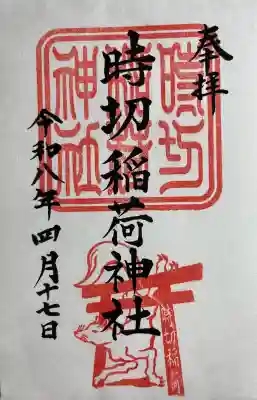 奉拝
時切稲荷神社
令和八年四月十七日
時切
稲荷
神社
時切稲荷